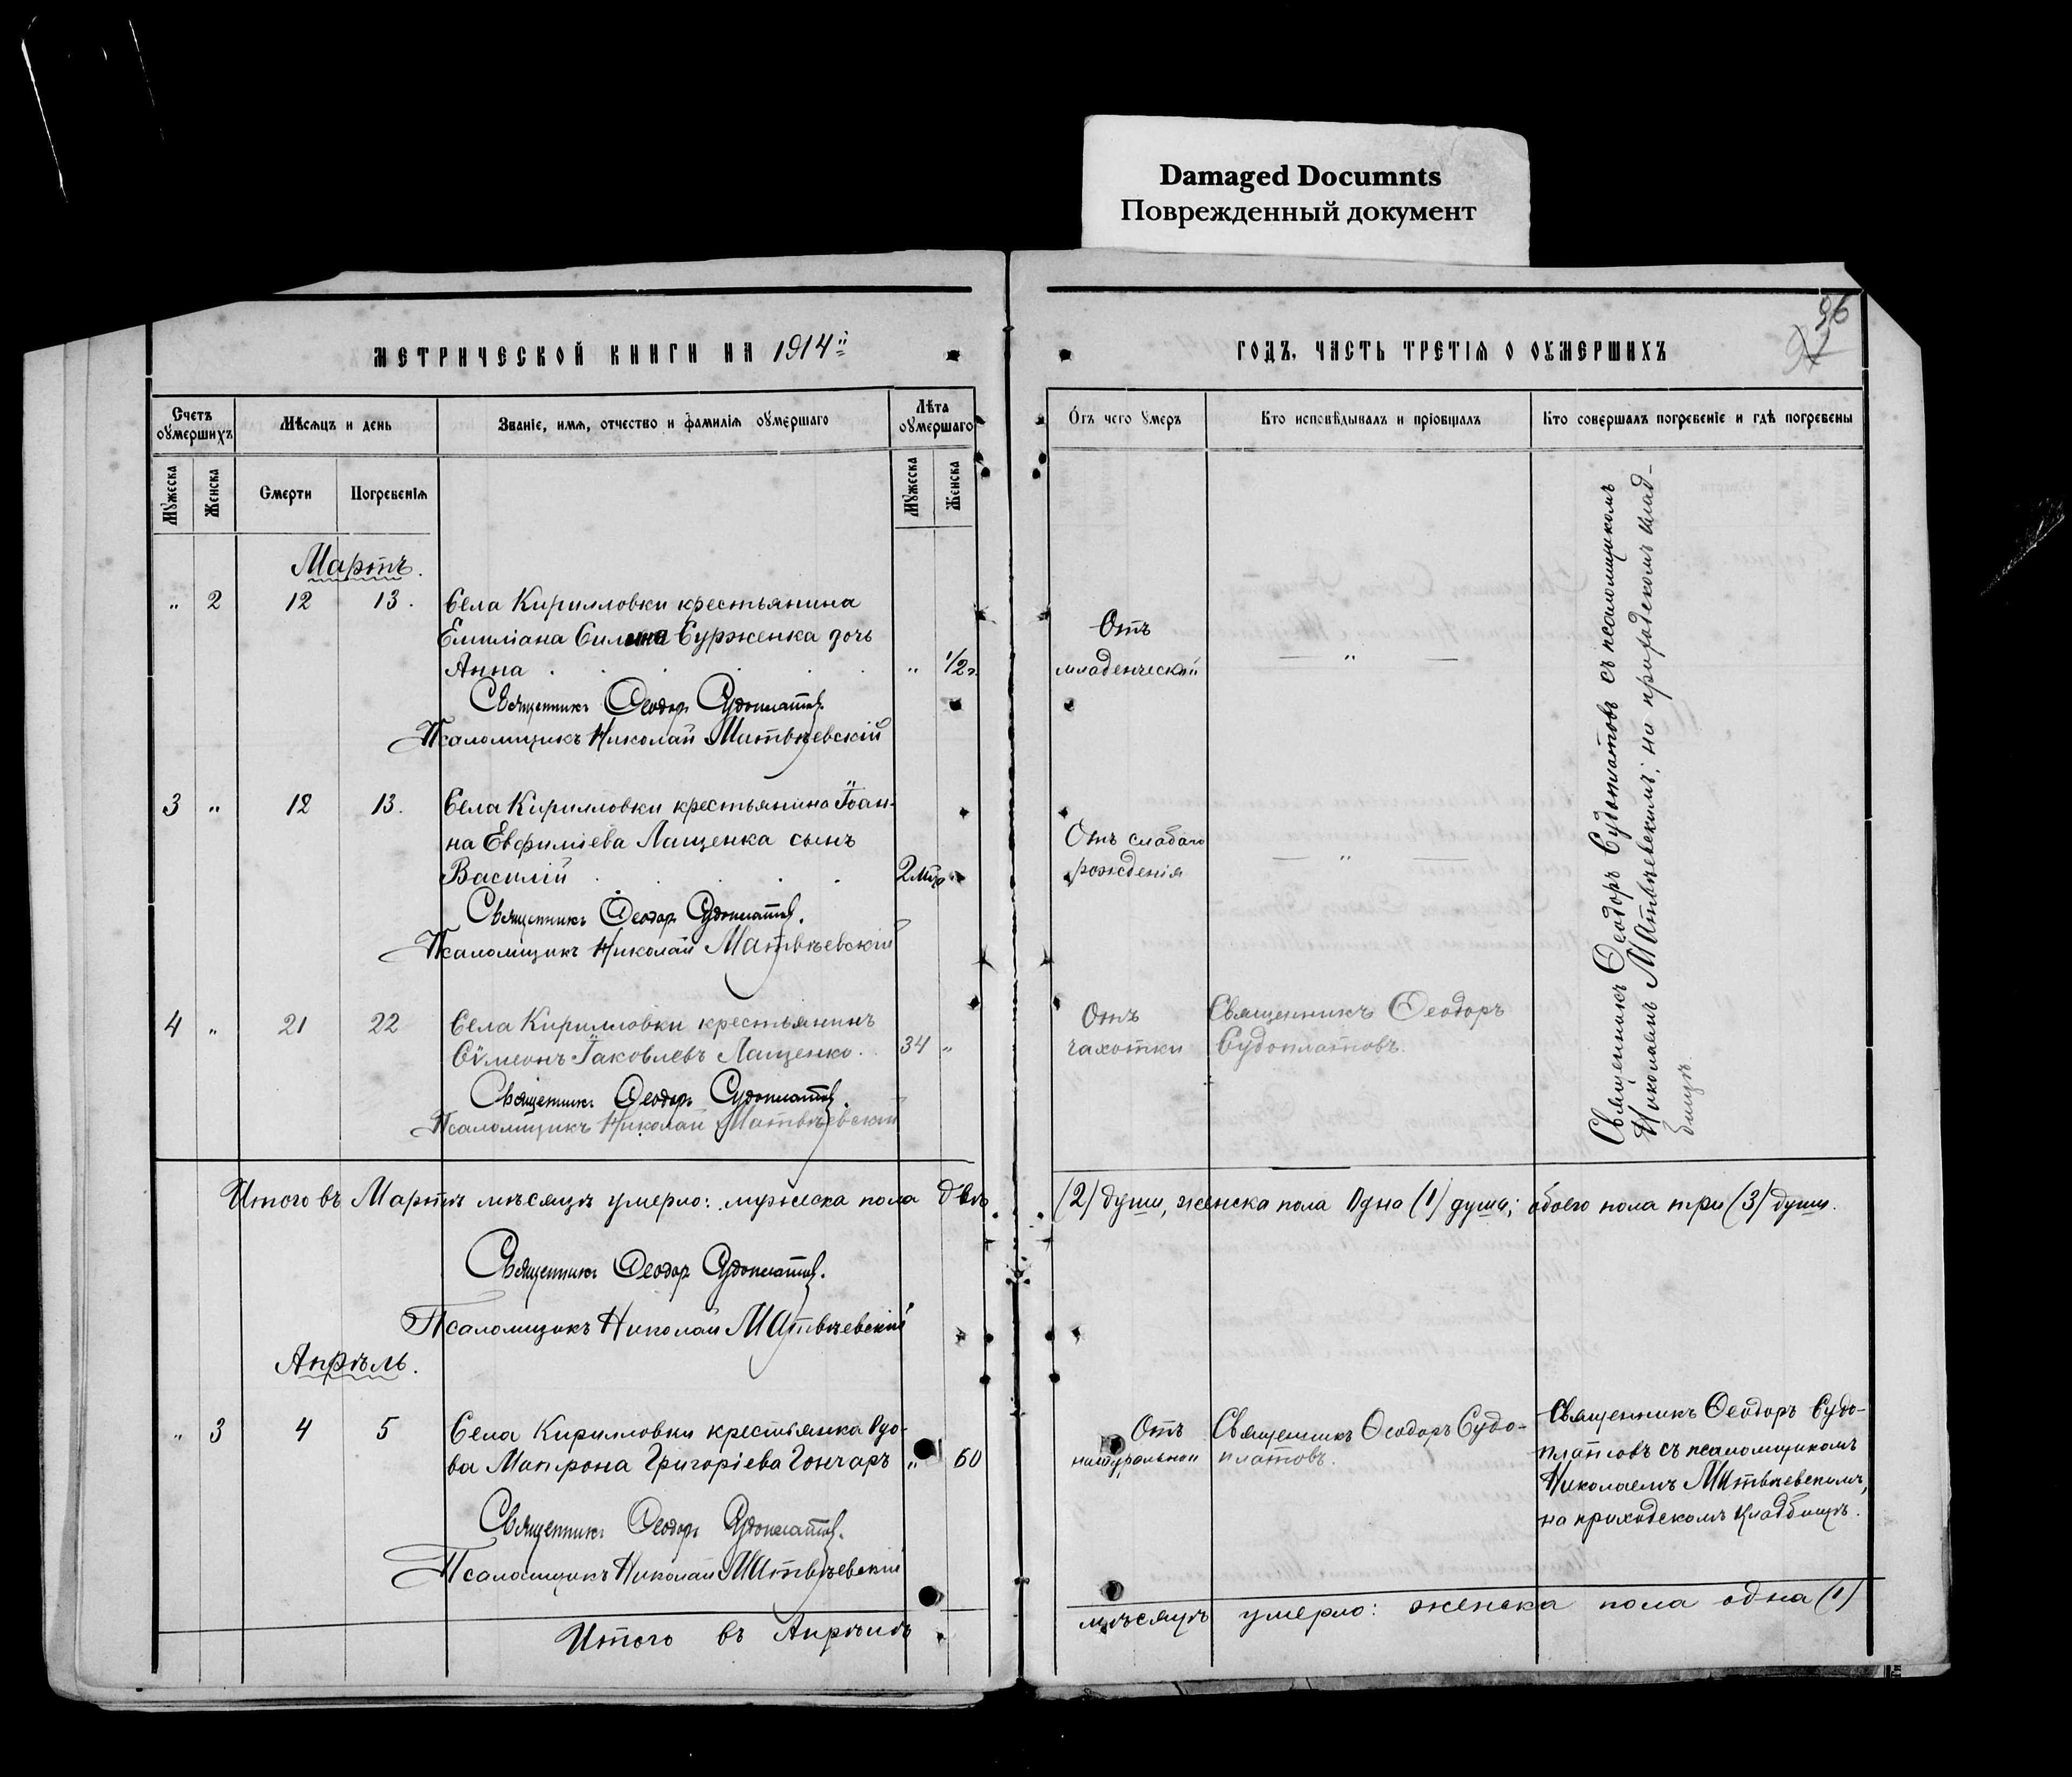 Damaged Documnts
Поврежденный документ
36
МЕТРИЧЕСКОЙ КНИГИ НА 1914й
ГОДЪ, ЧАСТЬ ТРЕТІЯ О ОУМЕРШИХЪ
Счетъ оумершихъ
Мѣсяцъ и день
Званіе, имя, отчество и фамилія оумершаго
Лѣта оумершаго
Отъ чего умеръ
Кто исповѣдывалъ и пріобщалъ
Кто совершалъ погребеніе и гдѣ погребены
Мужеска
Женска
Смерти
Погребенія
Мужеска
Женска
Мартъ.
" 2 12 13.
Села Кирилловки крестьянина
Емиліана Сурженка дочь
Анна . . . . . " 1/2 г.
Отъ
младенческой
— " —
Священникъ Ѳеодоръ Судоплатовъ.
Псаломщикъ Николай Матвѣевскій
3 " 12 13.
Села Кирилловки крестьянина Іоан-
на Евфиміева Лащенка сынъ
Василій . . . . 2 мѣс "
Отъ слабаго
рожденія
— " —
Священникъ Ѳеодоръ Судоплатовъ.
Псаломщикъ Николай Матвѣевскій
4 " 21 22
Села Кирилловки крестьянинъ
Сѵмеонъ Іаковлевъ Лащенко. . 34 "
Отъ
чахотки
Священникъ Ѳеодоръ
Судоплатовъ.
Священникъ Ѳеодоръ Судоплатовъ.
Псаломщикъ Николай Матвѣевскій
Священникъ Ѳеодоръ Судоплатовъ съ псаломщикомъ
Николаемъ Матвѣевскимъ; на приходскомъ клад-
бищѣ.
Итого въ Мартѣ мѣсяцѣ умерло: мужеска пола двѣ (2) души, женска пола одна (1) душа; обоего пола три (3) души.
Священникъ Ѳеодоръ Судоплатовъ.
Псаломщикъ Николай Матвѣевскій
Апрѣль.
" 3 4 5
Села Кирилловки крестьянка вдо-
ва Матрона Григоріева Гончаръ " 60
Отъ
натуральной
Священникъ Ѳеодоръ Судо-
платовъ.
Священникъ Ѳеодоръ Судо-
платовъ съ псаломщикомъ
Николаемъ Матвѣевскимъ,
на приходскомъ кладбищѣ.
Священникъ Ѳеодоръ Судоплатовъ.
Псаломщикъ Николай Матвѣевскій
Итого въ Апрѣлѣ мѣсяцѣ умерло: женска пола одна (1)